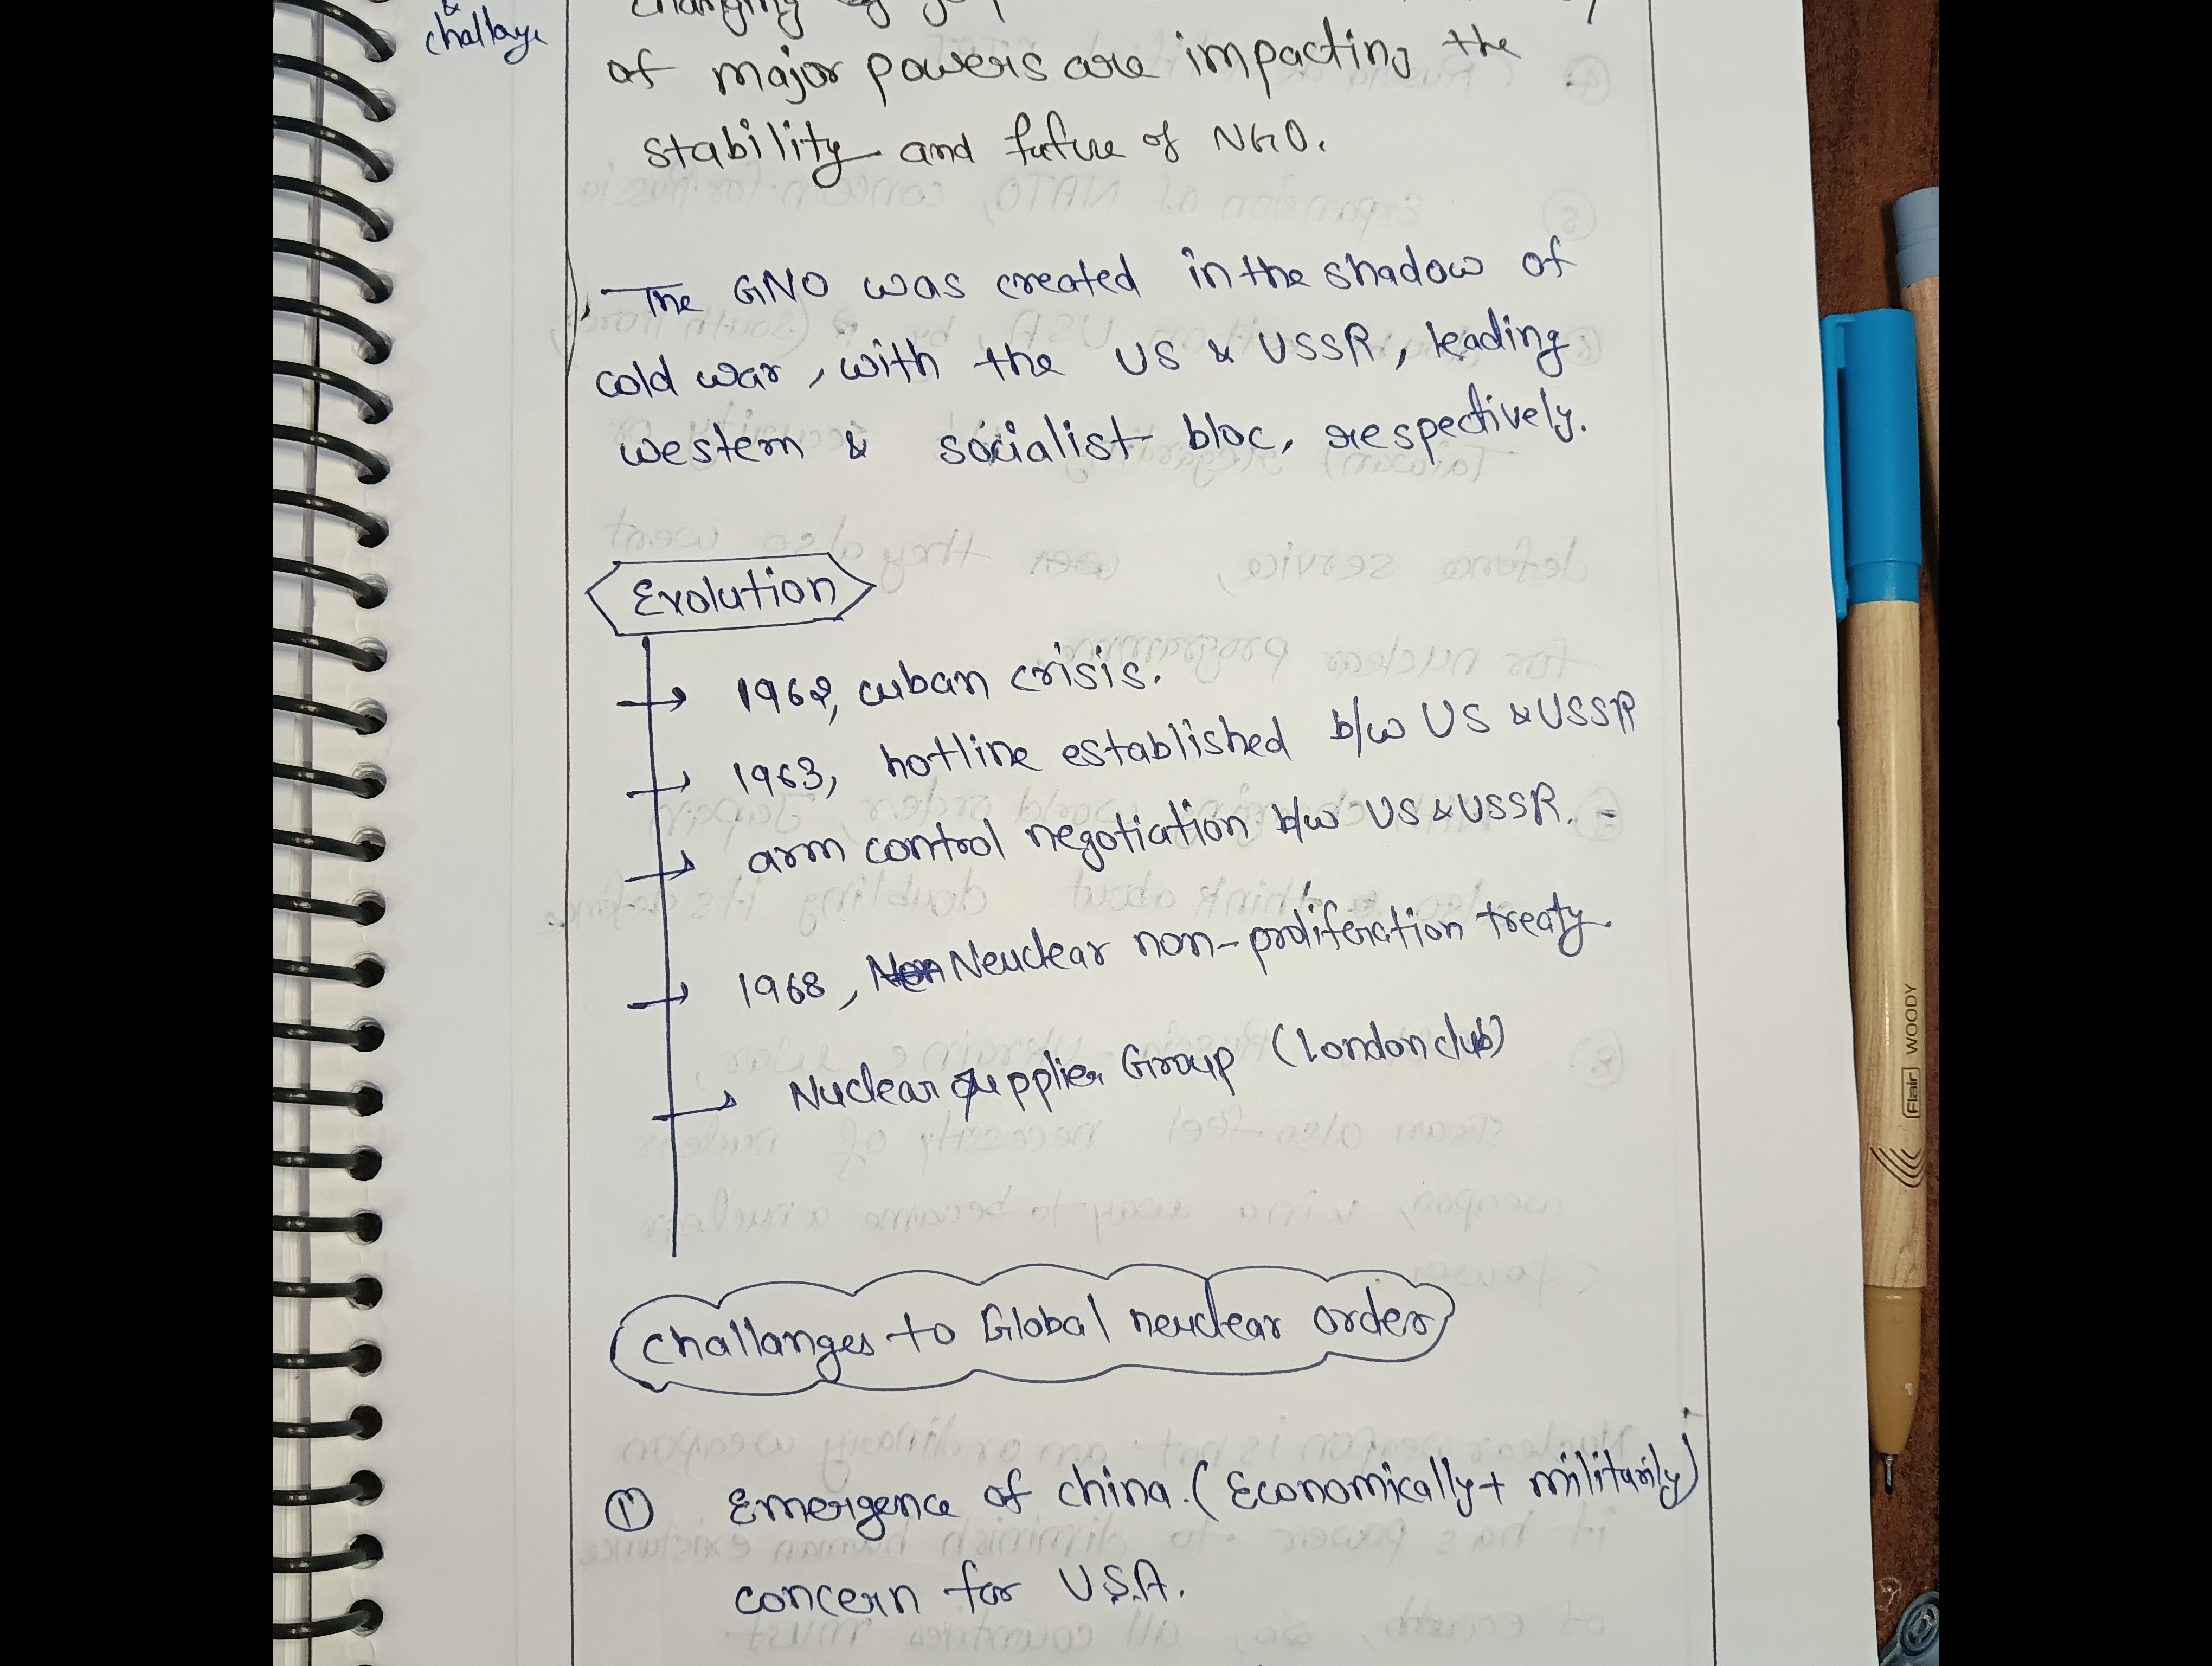 &
challange
changing
of major powers are impacting the
stability and future of NGO.
The GNO was created in the shadow of
cold war, with the US & USSR, leading
western & socialist bloc, respectively.
Evolution
1962, cuban crisis.
1963, hotline established b/w US & USSR
arm control negotiation b/w US & USSR.
1968, Non Neuclear non-proliferation treaty.
Nuclear supplier Group (London club)
challanges to Global neuclear order
1 Emergence of china. (Economically + militarily)
concern for U.S.A.
Flair WOODY